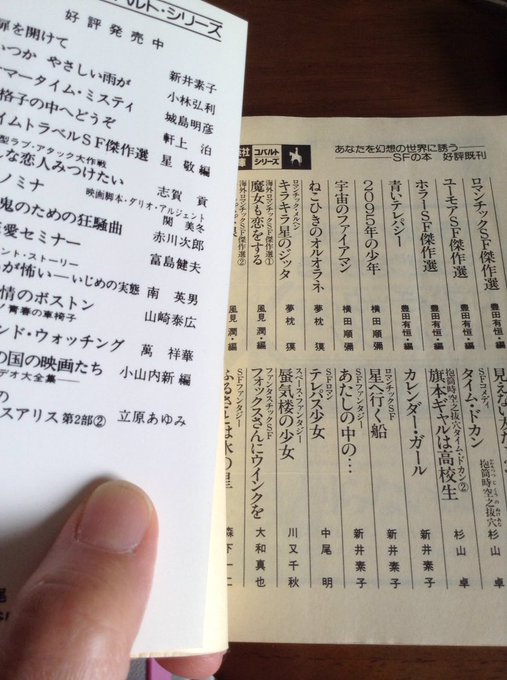 コバルト・シリーズ
好評発売中
扉を開けて 新井素子
いつか やさしい雨が 小林弘利
サマータイム・ミスティ 城島明彦
格子の中へどうぞ 軒上 泊
タイムトラベルSF傑作選 星 敬編
型ラブ・アタック大作戦
な恋人みつけたい 志賀 貢
映画脚本・ダリオ・アルジェント
ノミナ 関 美冬
鬼のための狂騒曲 赤川次郎
愛セミナー 富島健夫
ント・ストーリー
が怖い―いじめの実態 南 英男
情のボストン 山崎泰広
青春の車椅子
ンド・ウォッチング 萬 祥華
の国の映画たち 小山内新編
デオ大全集―
の
スアリス 第2部② 立原あゆみ
あなたを幻想の世界に誘う
SFの本 好評既刊
コバルトシリーズ
ロマンチックSF傑作選 豊田有恒・編
ユーモアSF傑作選 豊田有恒・編
ホラーSF傑作選 豊田有恒・編
青いテレパシー 豊田有恒
2095年の少年 横田順彌
宇宙のファイアマン 横田順彌
ねこひきのオルオラネ 夢枕 獏
海外ロマンチック・メルヘン
キラキラ星のジッタ 夢枕 獏
海外ロマンチックSF傑作選①
魔女も恋をする 風見 潤・編
海外ロマンチックSF傑作選②
風見 潤・編
SFコメディ
タイム・ドカン 杉山 卓
抱筒時空之抜穴
抱筒時空之抜穴タイム・ドカン②
旗本ギャルは高校生 杉山 卓
カレンダー・ガール 新井素子
ロマンチックSF
星へ行く船 新井素子
あたしの中の… 新井素子
SFロマン
テレパス少女 中尾 明
スペース・ファンタジー
蜃気楼の少女 川又千秋
ファンタスチックSF
フォックスさんにウインクを 大和真也
SFファンタジー
ふるさとは水の星 森下一仁